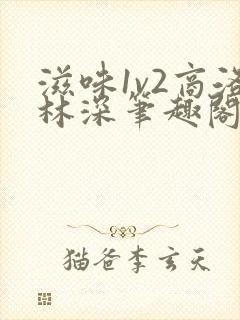 滋味1v2高洛
林深笔趣阁
猫爸李玄天